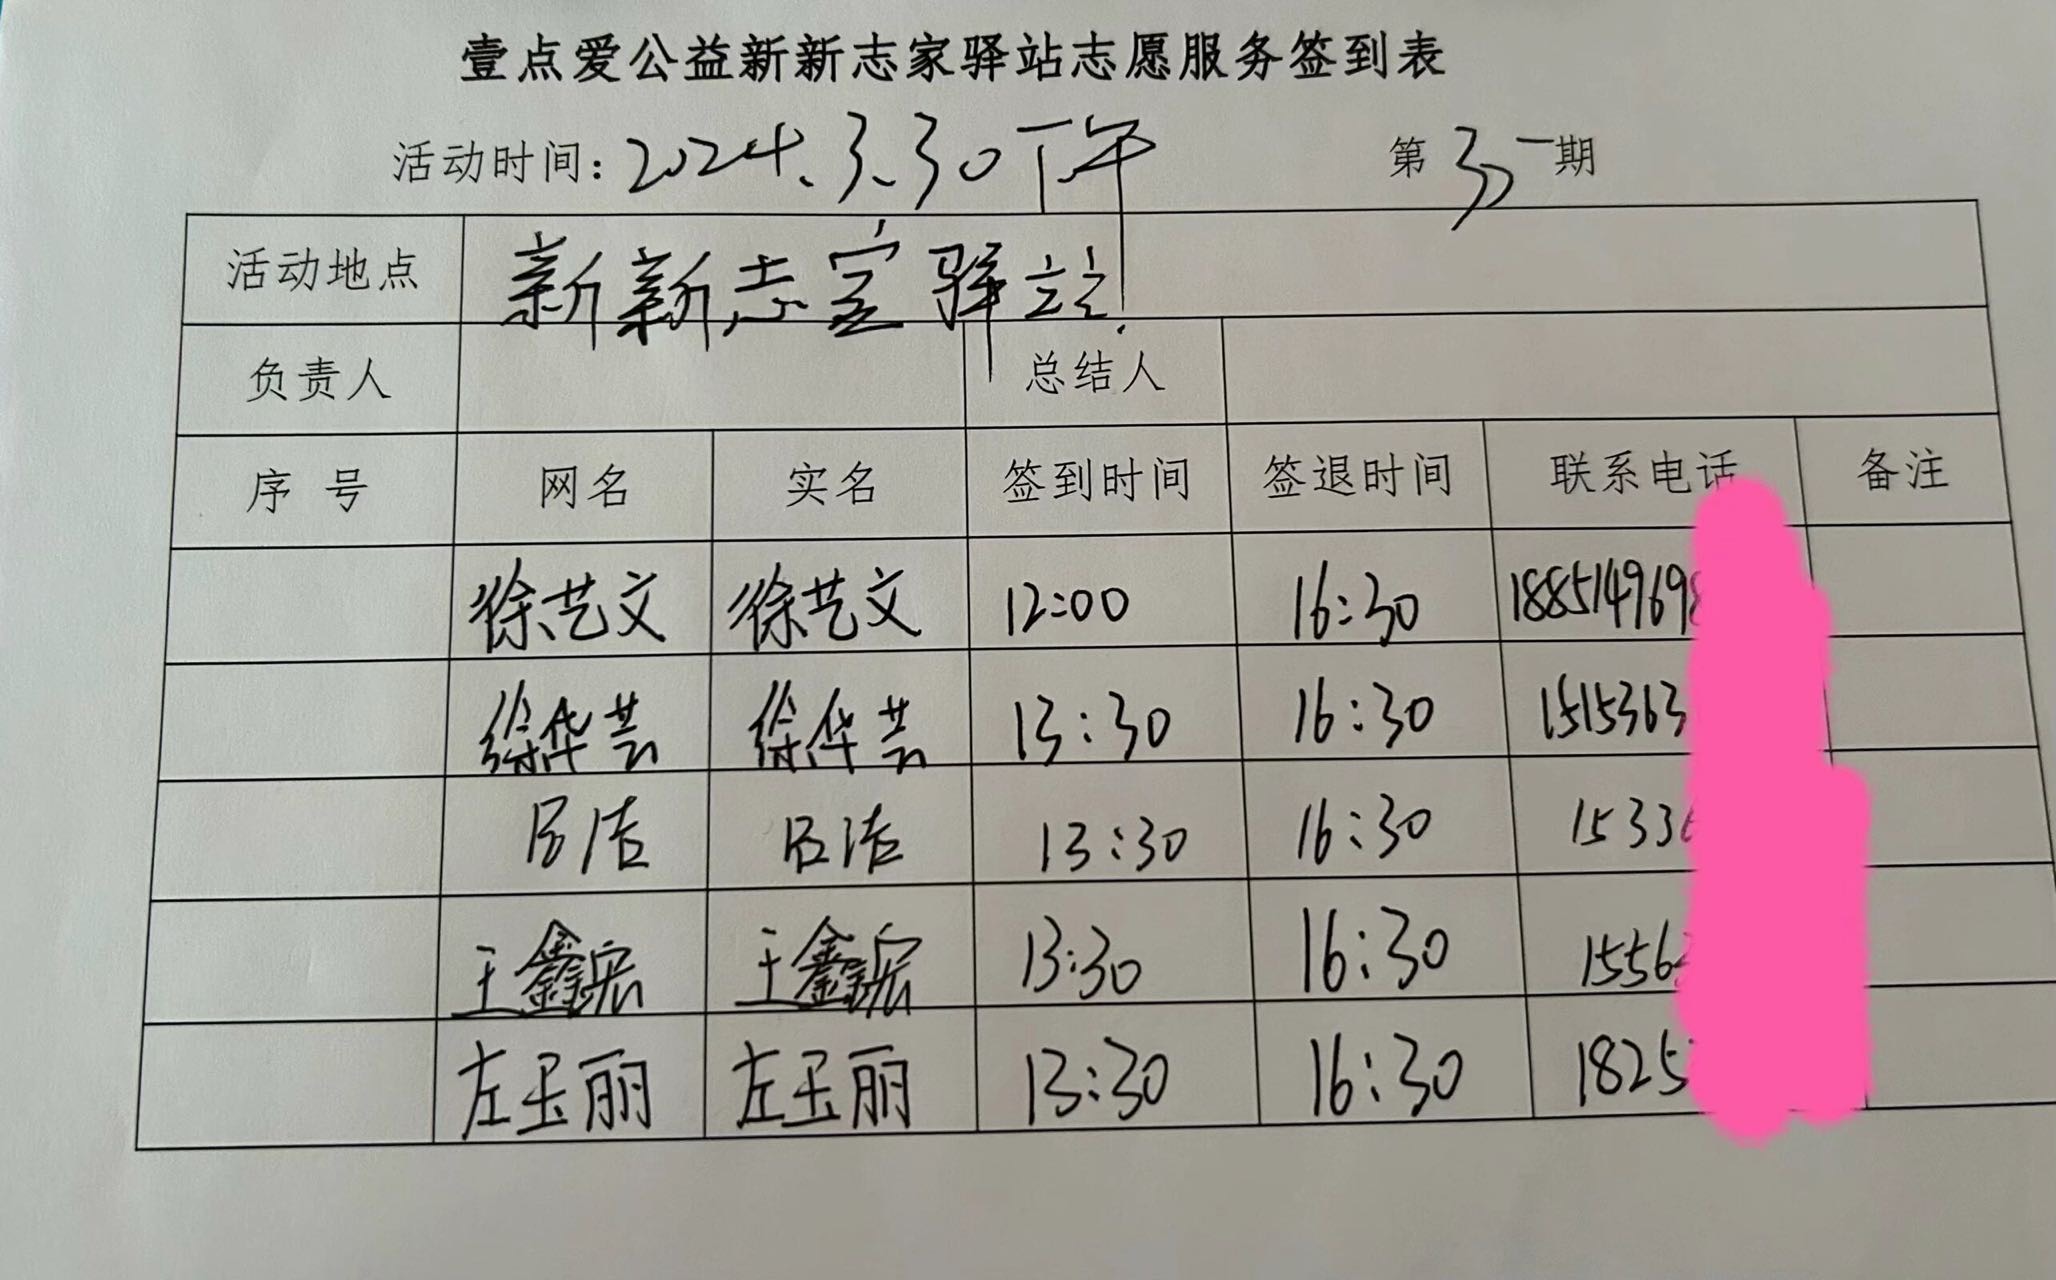 壹点爱公益新新志家驿站志愿服务签到表
活动时间：2024.3.30下午 第 期
活动地点 新新志家驿站
负责人 总结人
序号 网名 实名 签到时间 签退时间 联系电话 备注
徐艺文 徐艺文 12:00 16:30 1885149698
徐华芸 徐华芸 13:30 16:30 1515363
吕洁 吕洁 13:30 16:30 1533
王鑫宏 王鑫宏 13:30 16:30 1556
左玉丽 左玉丽 13:30 16:30 1825